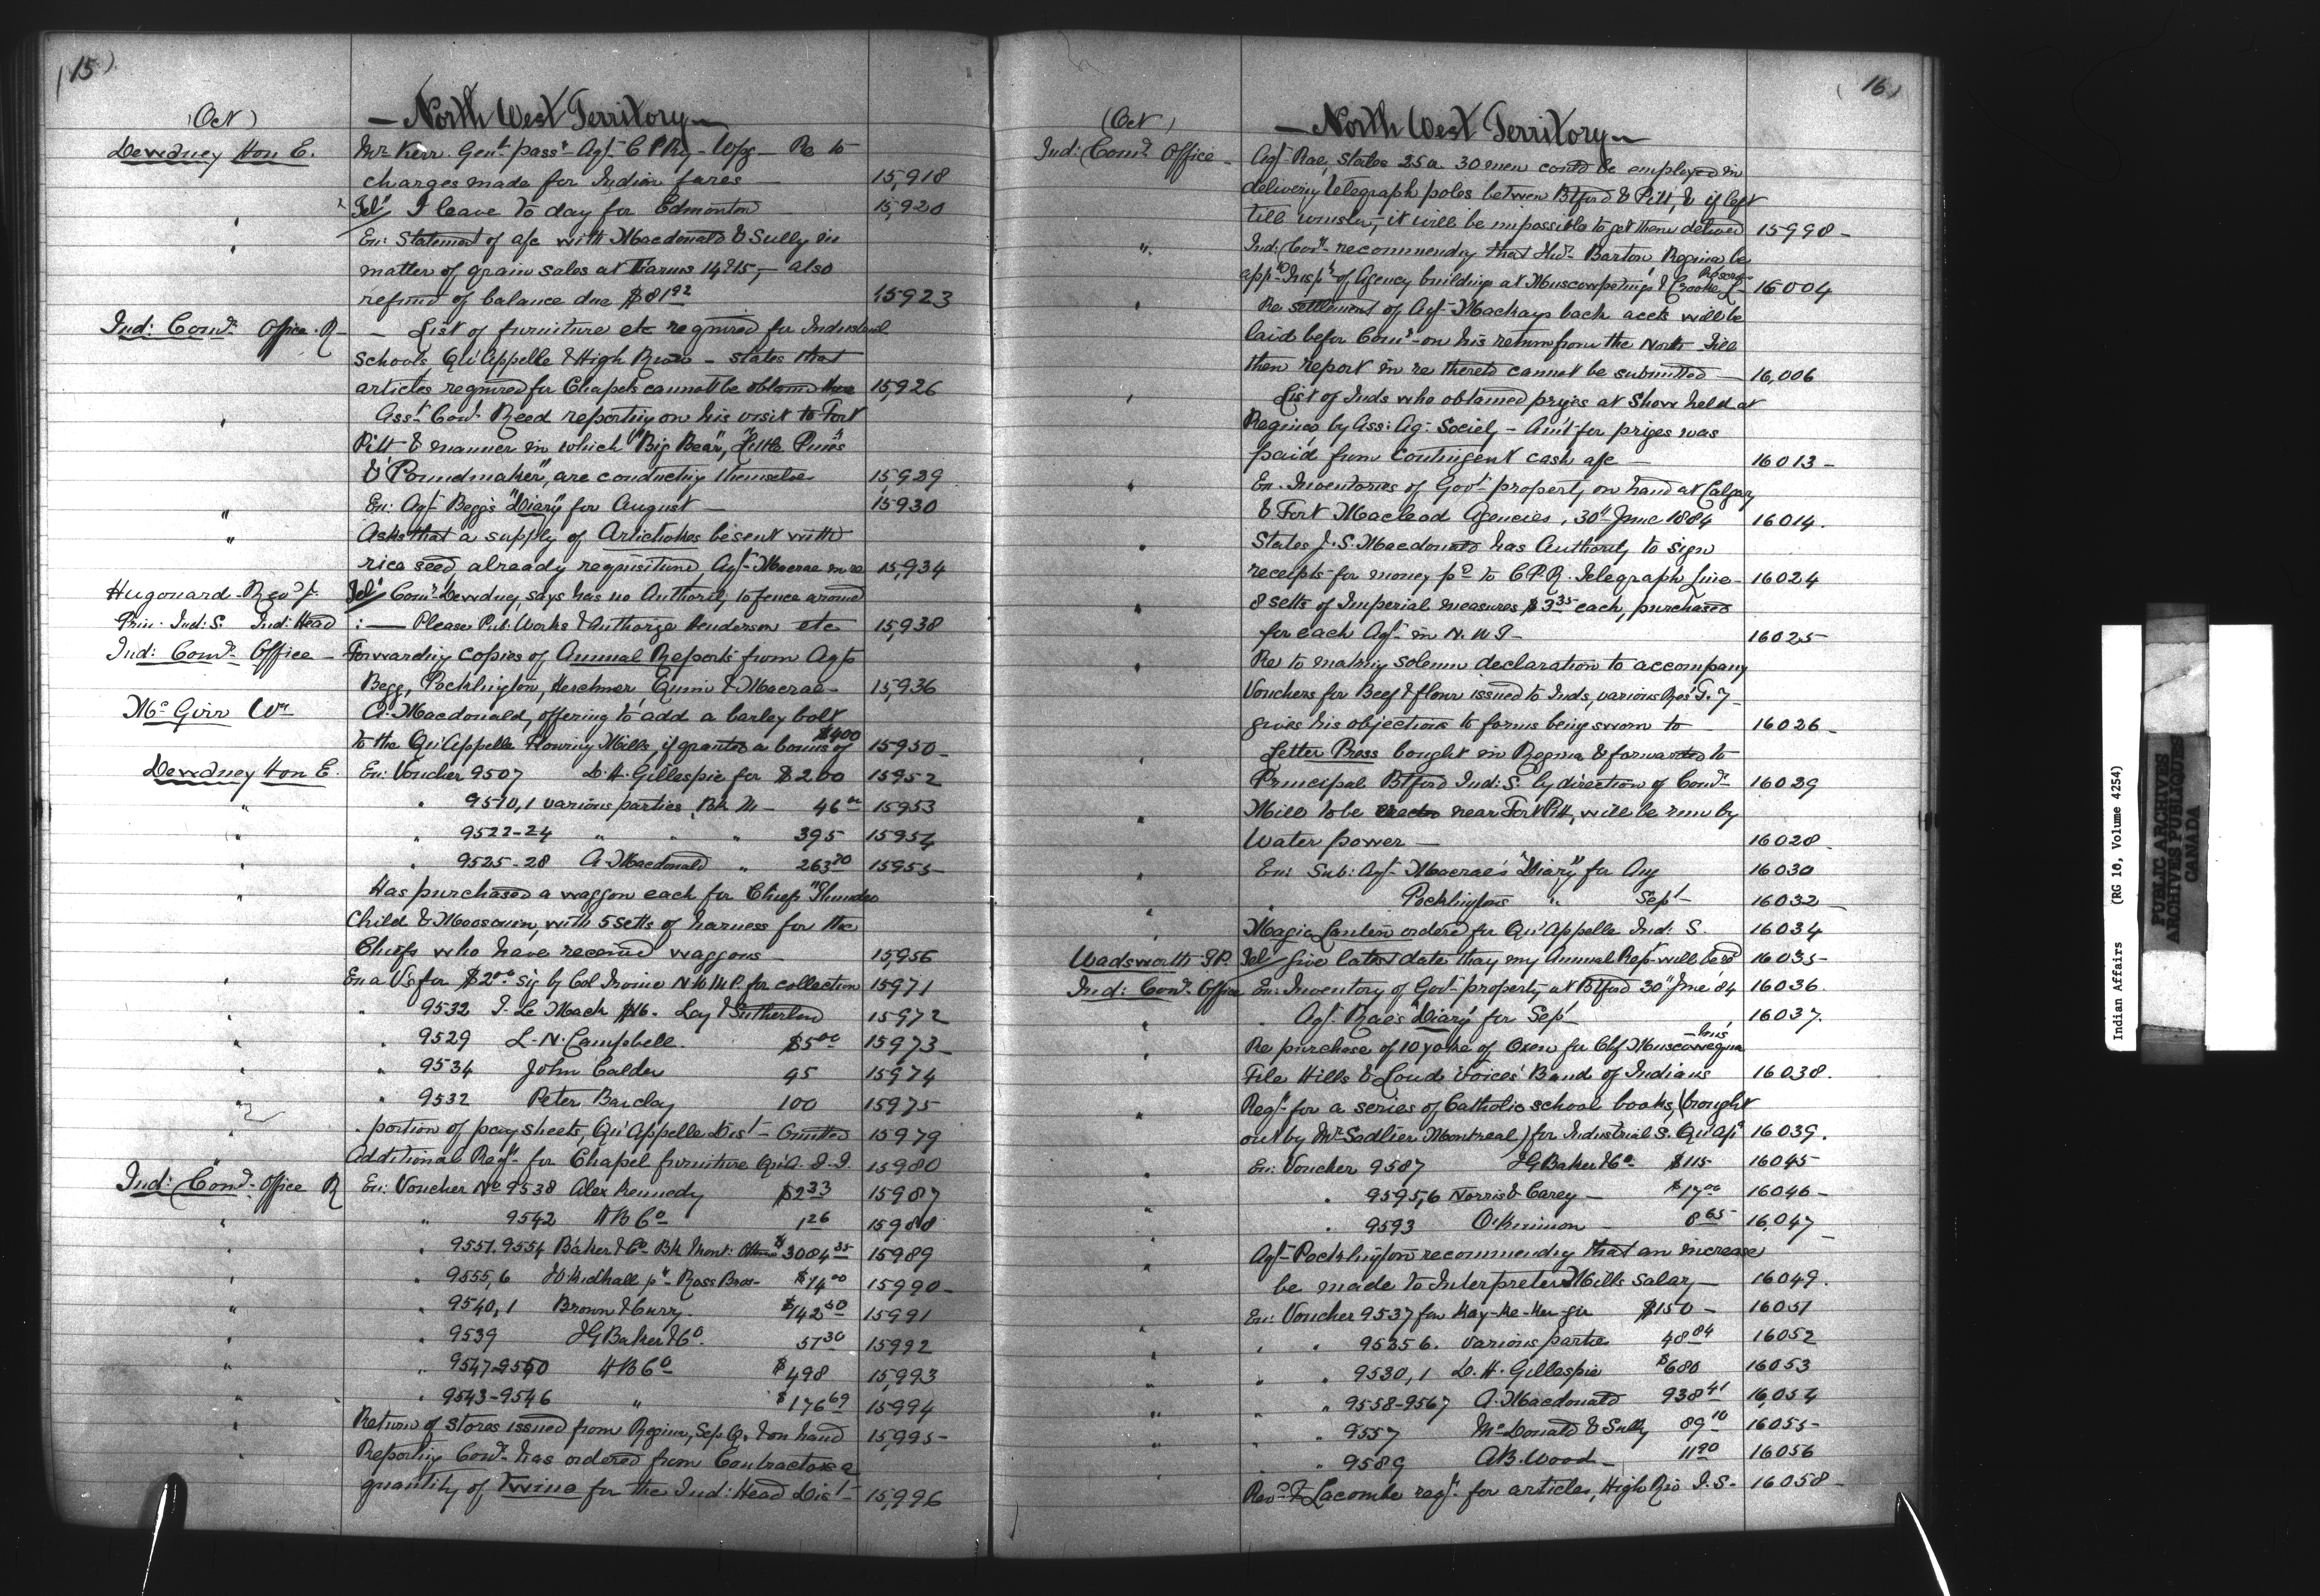 (15)
(Oct)
— North West Territory —
Dewdney Hon E.
Mr Kerr Genl passr Agt C P Ry Wpg Re to
charges made for Indian fares 15,918
" Tel: I leave to day for Edmonton 15,920
" En: Statement of a/c with Macdonald & Sully in
matter of grain sales at Farms 14 & 15, — also
refund of balance due $81 92 15923
Ind: Comr Office. R — List of furniture etc required for Industrial
Schools Qu'Appelle & High River — states that
articles required for Chapels cannot be obtained there 15,926
" Asst Comr Reed reporting on his visit to Fort
Pitt & manner in which "Big Bear", "Little Pines"
& "Poundmaker", are conducting themselves 15929
" En: Agt Begg's "Diary" for August — 15930
" Asks that a supply of Artichokes be sent with
rice seed already requisitioned Agt Macrae in re 15,934
Hugonard Revd J. Tel: Comr Dewdney, says has no Authority to fence around
Prin. Ind: S. Ind: Head :— Please Pub: Works & Authorize Henderson etc 15,938
Ind: Comr Office — Forwarding copies of Annual Reports from Agts
Begg, Pocklington, Herchmer, Quinn & Macrae — 15,936
McGirr Wm A. Macdonald, offering to add a barley bolt
to the Qu'Appelle Flowring Mills, if granted a bonus of $400 15950
Dewdney Hon E. En: Voucher 9507 D. H. Gillespie for $200 15952
" " 9510,1 various parties, Bk M — 46 00 15953
" " 9522-24 " " " 395 15954
" " 9525-28 A. Macdonald " 263 20 15955
" Has purchased a waggon each for Chiefs "Thunder
Child & Moosomin, with 5 setts of harness for the
Chiefs who have received waggons 15,956
" En a V's for $2 00 sig by Col Irvine N.W.M.P. for collection 15971
" " 9532 J. Le Mack $16. Lay & Sutherland 15972
" " 9529 L. N. Campbell. $5 00 15973
" " 9534 John Calder 95 15974
" " 9532 Peter Barclay 100 15975
" portion of pay sheets, Qu'Appelle Dist — Omitted 15979
" Additional Reqn for Chapel furniture Qu'A. I. S. 15980
Ind: Comr Office R En: Voucher No 9538 Alex Kennedy $2 33 15987
" " 9542 H B Co 1 26 15988
" " 9551.9554 Baker & Co Bk Mont: Ottawa $3084 35 15989
" " 9555,6 pr Ross Bros — $14 00 15990
" " 9540,1 Brown & Curry. $142 50 15991
" " 9539 J G Baker & Co. 57 30 15992
" " 9547-9550 H B Co $498 15,993
" " 9543-9546 " $176 69 15994
" Return of stores issued from Regina, Sep Q. & on hand 15,995
" Reporting Comr has ordered from Contractors a
quantity of twine for the Ind: Head Dist — 15,996
(16)
(Oct)
— North West Territory —
Ind: Comr Office — Agt Rae, states 25 a 30 men could be employed in
delivering telegraph poles between Btford & Pitt, & if left
till winter, it will be impossible to get them delivered 15998
" Ind: Comr recommending that Hw Barton Regina be
appd Inspr of Agency buildings at Muscowpetungs & Crooked L. Reserves 16004
" Re settlement of Agt Mackays back accts will be
laid before Comr on his return from the North. Till
then report in re thereto cannot be submitted — 16,006
" List of Inds who obtained prizes at Show held at
Regina by Ass: Ag: Society — Amt for prizes was
paid from contingent cash a/c — 16013
" En. Inventories of Govt property on hand at Calgary
& Fort Macleod Agencies, 30th June 1884 16014.
" States J. S. Macdonald has Authority to sign
receipts for money pd to C. P. R. Telegraph Line — 16024
" 8 setts of Imperial measures $3 35 each, purchased
for each Agt in N. W T — 16025
" Re to making solemn declaration to accompany
Vouchers for Beef & flour issued to Inds, various Res' T. 7
gives his objections to forms being sworn to — 16026
" Letter Press bought in Regina & forwarded to
Principal Btford Ind: S. by direction of Comr 16029
" Mill to be erected near Fort Pitt, will be run by
Water power — 16028
" En: Sub: Agt Macrae's "Diary" for Aug 16030
" " Pocklingtons " Sept 16032
" Magic Lantern ordered for Qu'Appelle Ind: S. 16034
Wadsworth T.P. Tel: Give latest date thay my Annual Rept will be recd 16035
Ind: Comr Office En: Inventory of Govt property at Btford 30th June '84 16036.
" " Agt Rae's "Diary" for Sept 16037.
" Re purchase of 10 yoke of Oxen for Chf Muscowequan
File Hills & Loud Voices' Band of Indians 16038.
" Reqn for a series of Catholic school books, (brought
out by Mr Sadlier Montreal) for Industrial S. Qu'Ap: 16039.
" En: Voucher 9587 J G Baker & Co $115 16045
" " 9595,6 Norris & Carey — $17 00 16046
" " 9593 8 65 16,047
" Agt Pocklington recommending that an increase
be made to Interpreter Mills salary — 16049.
" En: Voucher 9537 for Kay-Ke-Ker-gin $150 — 16051
" " 9535 6. various parties 48 84 16052
" " 9530,1 D. H. Gillespie $680 16053
" " 9558-9567 A. Macdonald 938 41 16,054
" " 9557 McDonald & Sully 89 10 16055
" " 9589 A B. Wood — 11 90 16056
Revd F Lacombe reqn for articles, High Riv I. S. — 16058
Indian Affairs (RG 10, Volume 4254)
PUBLIC ARCHIVES
ARCHIVES PUBLIQUES
CANADA